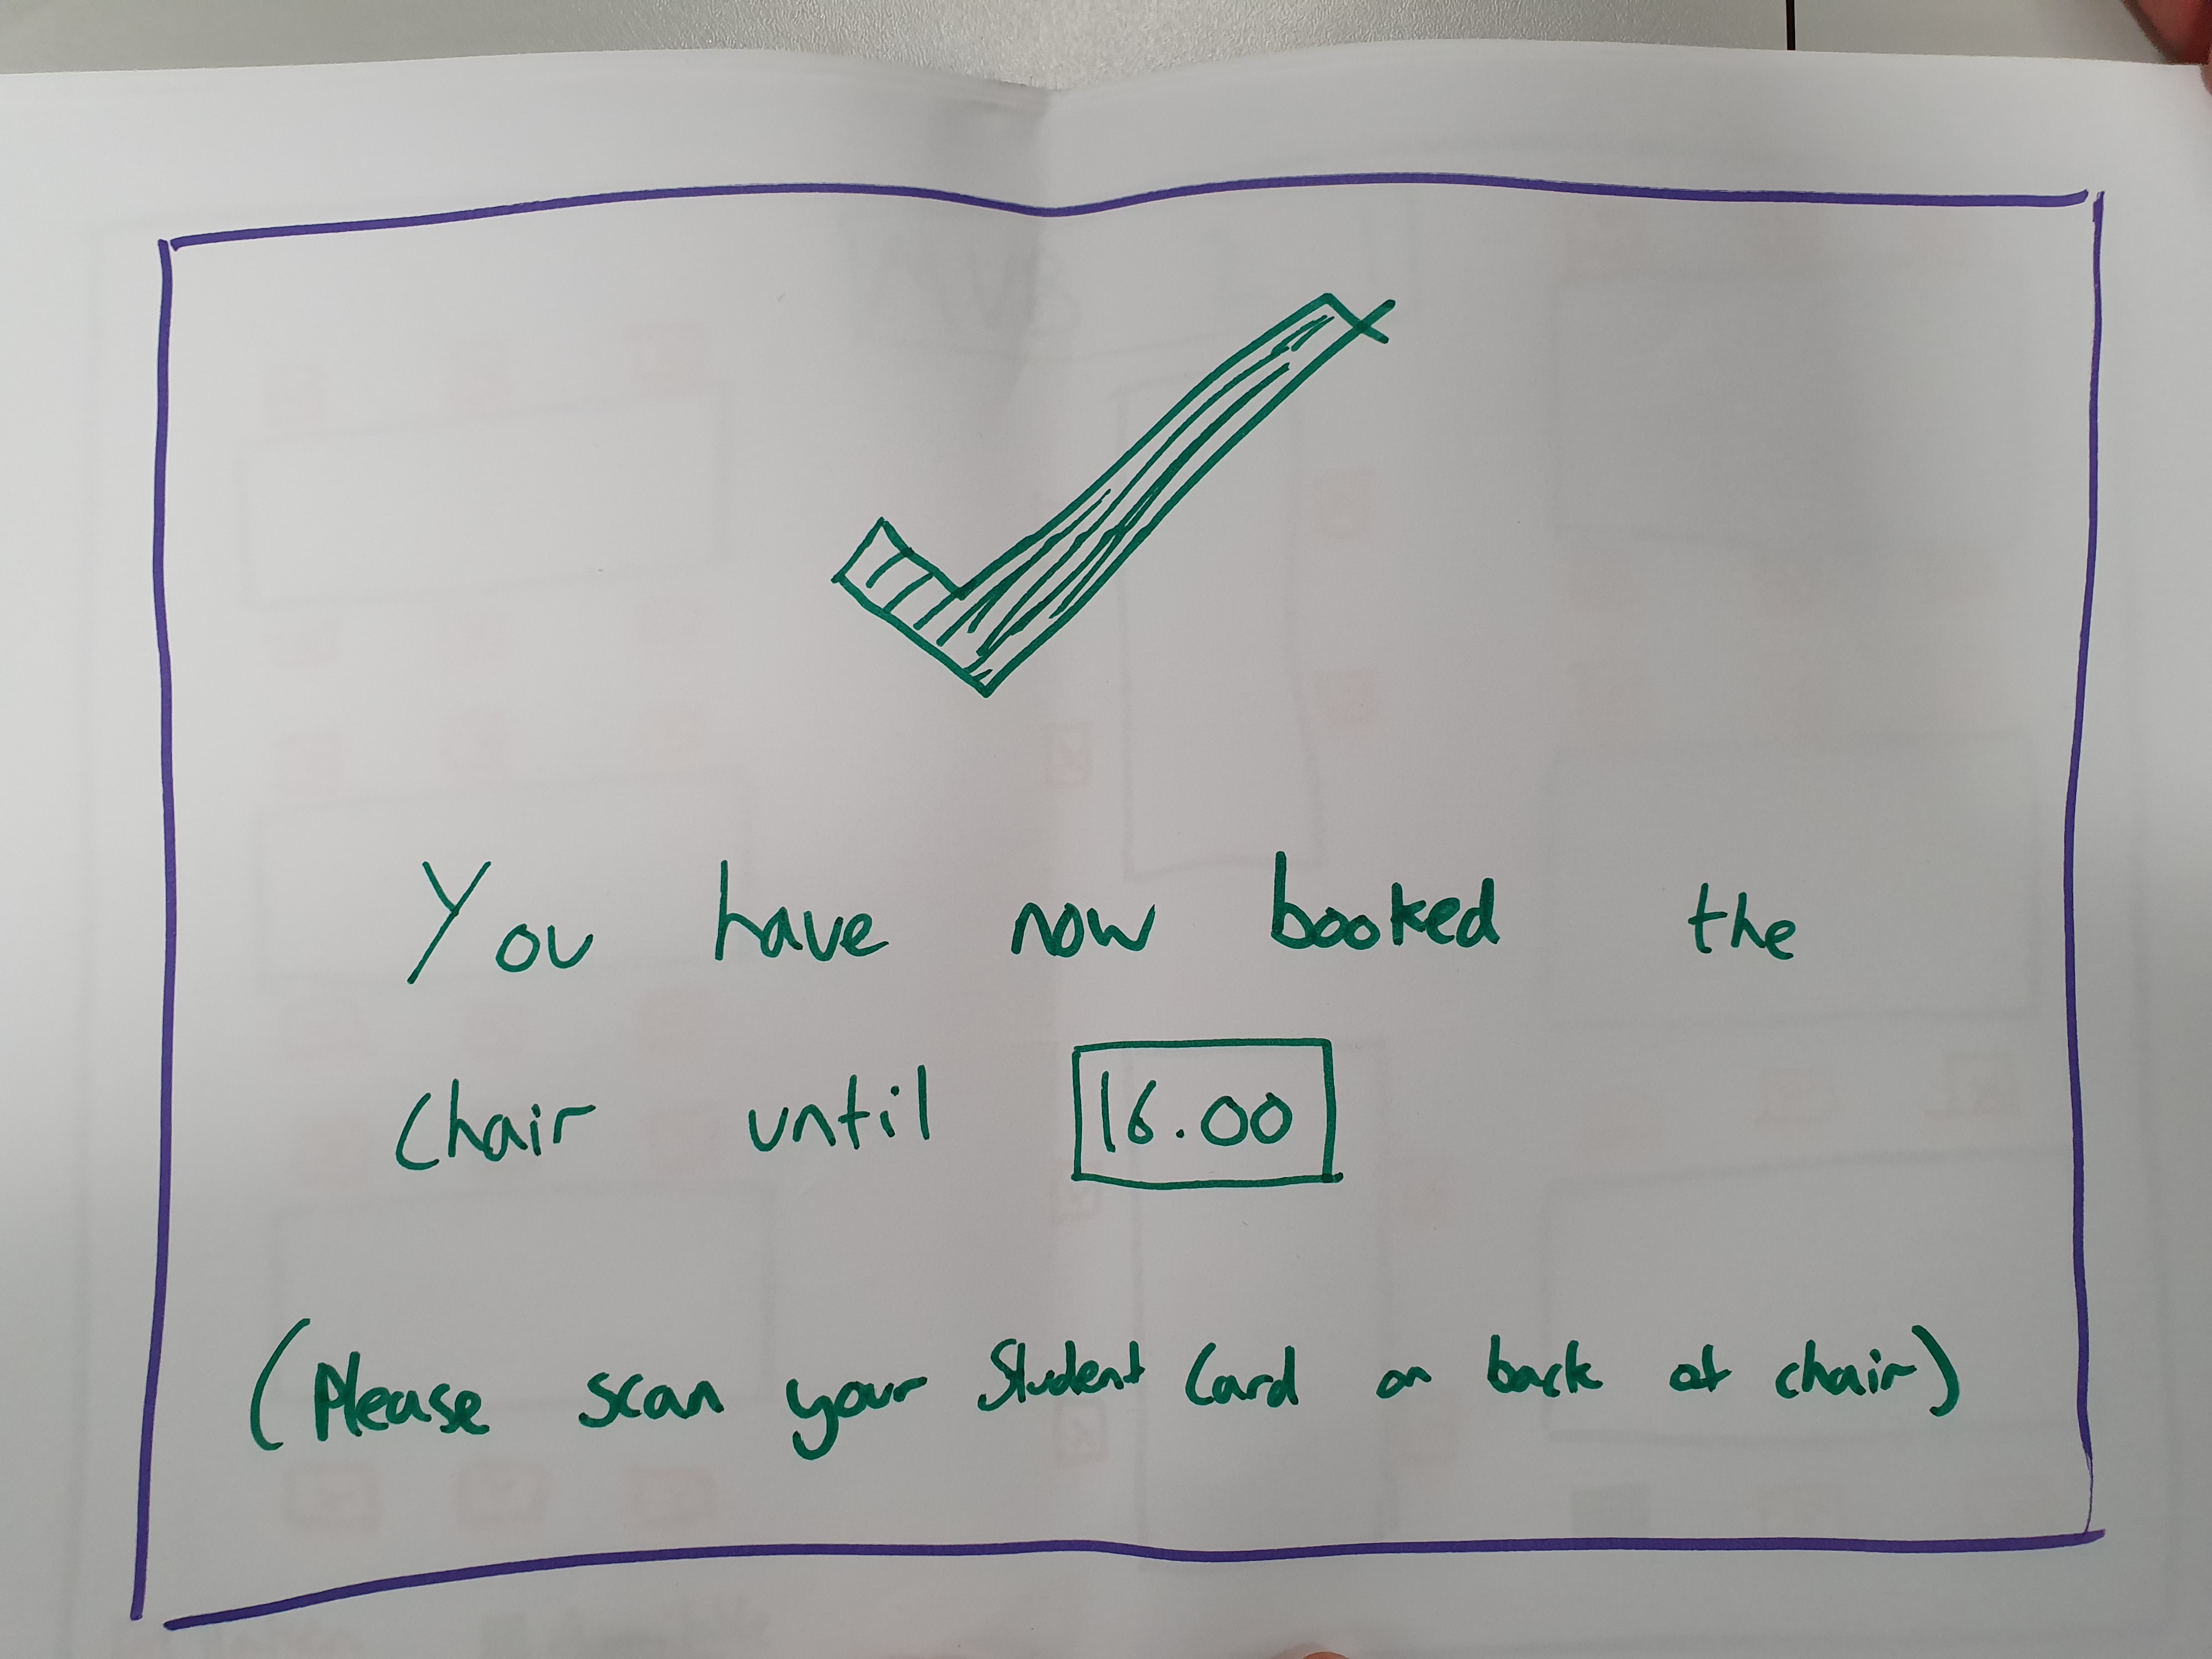 You have now booked the
Chair until 16.00
(Please scan your Student Card on back at chair)